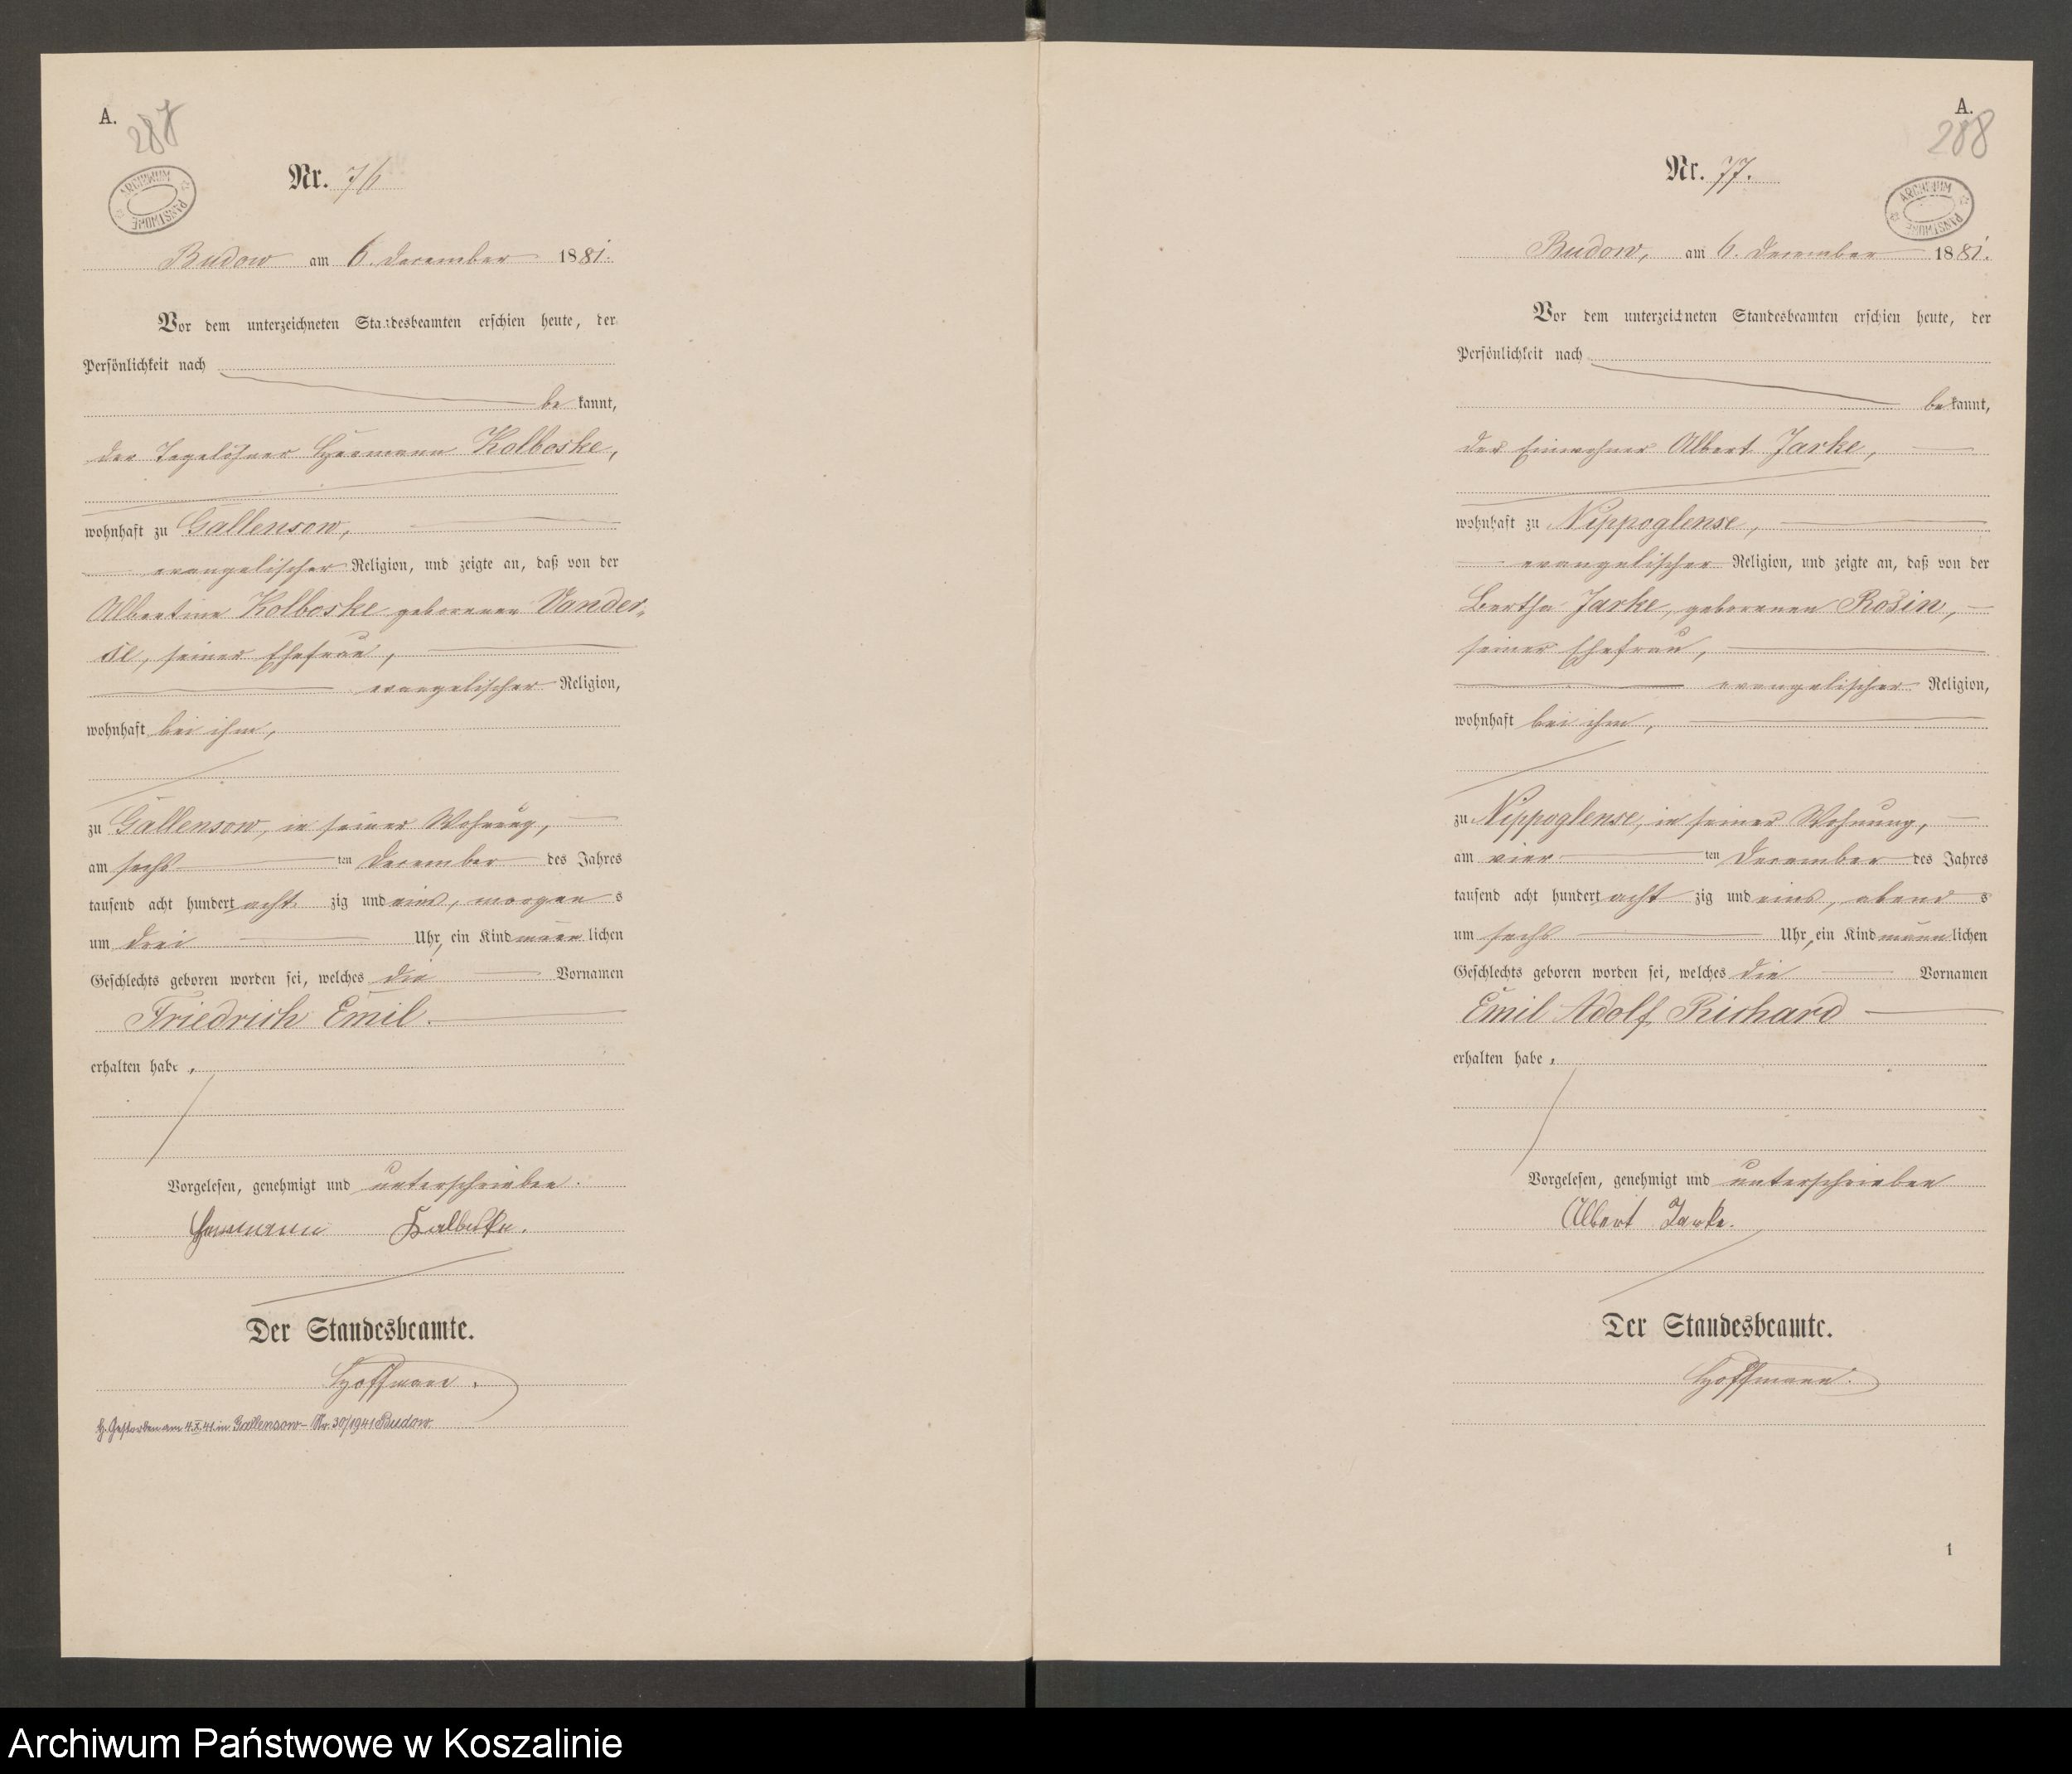 A.
287
ARCHIWUM PAŃSTWOWE
Nr. 76
Budow am 6. December 1881.
Vor dem unterzeichneten Standesbeamten erschien heute, der
Persönlichkeit nach
be kannt,
der Tagelöhner Hermann Kolboske,
wohnhaft zu Gallensow,
evangelischer Religion, und zeigte an, daß von der
Albertine Kolboske geborenen Vander-
see, seiner Ehefrau,
evangelischer Religion,
wohnhaft bei ihm,
zu Gallensow, in seiner Wohnung,
am sechs ten December des Jahres
tausend acht hundert acht zig und eins, morgen s
um drei Uhr, ein Kind männ lichen
Geschlechts geboren worden sei, welches die Vornamen
Friedrich Emil.
erhalten habe,
Vorgelesen, genehmigt und unterschrieben.
Hermann Kolboske.
Der Standesbeamte.
Hoffmann.
H. Gestorben am 4.X.41 in Gallensow – Nr. 30/1941 Budow
A.
288
ARCHIWUM PAŃSTWOWE
Nr. 77.
Budow, am 6. December 1881.
Vor dem unterzeichneten Standesbeamten erschien heute, der
Persönlichkeit nach
be kannt,
der Einwohner Albert Jarke,
wohnhaft zu Nippoglense,
evangelischer Religion, und zeigte an, daß von der
Bertha Jarke, geborenen Rosin,
seiner Ehefrau,
evangelischer Religion,
wohnhaft bei ihm,
zu Nippoglense, in seiner Wohnung,
am vier ten December des Jahres
tausend acht hundert acht zig und eins, abend s
um sechs Uhr, ein Kind männ lichen
Geschlechts geboren worden sei, welches die Vornamen
Emil Adolf Richard
erhalten habe,
Vorgelesen, genehmigt und unterschrieben
Albert Jarke.
Der Standesbeamte.
Hoffmann.
1
Archiwum Państwowe w Koszalinie